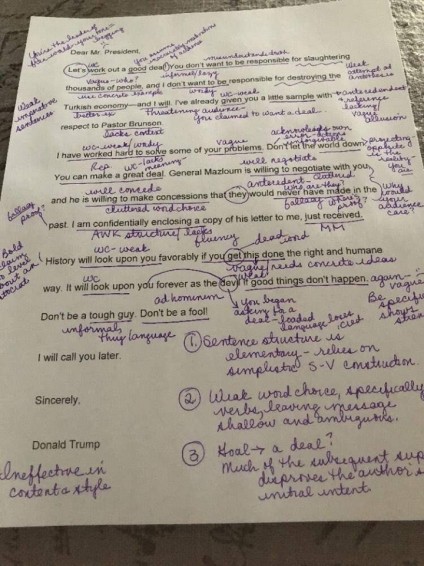 You're the leader of
the world
Dear Mr. President,
WC
misunderstood
Let's work out a good deal! You don't want to be responsible for slaughtering
Vague - who?
informal/lazy
Weak
attempt at
thousands of people, and I don't want to be responsible for destroying the
use concrete example
wordy
WC-weak
Weak
imperative
sentences
Turkish economy—and I will. I've already given you a little sample with
antecedent
reference
lacking
Threatening audience-
you claimed to want a deal.
vague
allusion
respect to Pastor Brunson.
lacks context
WC-weak
wordy
vague
acknowledges own
I have worked hard to solve some of your problems. Don't let the world down.
Rep
WC-lacks
meaning
will negotiate
You can make a great deal. General Mazloum is willing to negotiate with you,
will concede
antecedent-cluttered
who are they
and he is willing to make concessions that they would never have made in the
cluttered word choice
fallacy
where's
proof?
Why
should
your
audience
care?
fallacy
proof?
past. I am confidentially enclosing a copy of his letter to me, just received.
AWK structure/lacks
fluency
MM
dead word
Bold
claim
WC-weak
History will look upon you favorably if you get this done the right and humane
WC
vague/needs concrete ideas
way. It will look upon you forever as the devil if good things don't happen.
again-
vague
ad hominem
You began
asking for a
deal-loaded
language loses
Be specific
shows
Don't be a tough guy. Don't be a fool!
informal,
thug language
① Sentence structure is
elementary - relies on
simplistic S-V construction.
I will call you later.
② Weak word choice, specifically
verbs, leaving message
shallow and ambiguous.
Sincerely,
Donald Trump
③ Goal → a deal?
Much of the subsequent
disproves the author's
initial intent.
Ineffective in
content & style